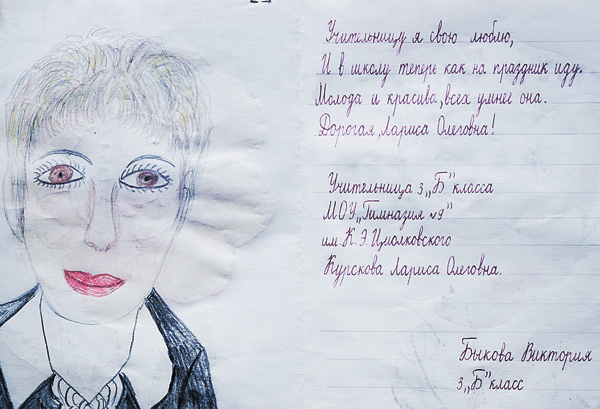 Учительницу я свою люблю,
И в школу теперь как на праздник иду.
Молода и красива, всех умнее она.
Дорогая, Лариса Олеговна!
Учительница 3 „Б” класса
МОУ „Гимназия №9”
им. К. Э. Циолковского
Курскова Лариса Олеговна.
Быкова Виктория
3 „Б” класс